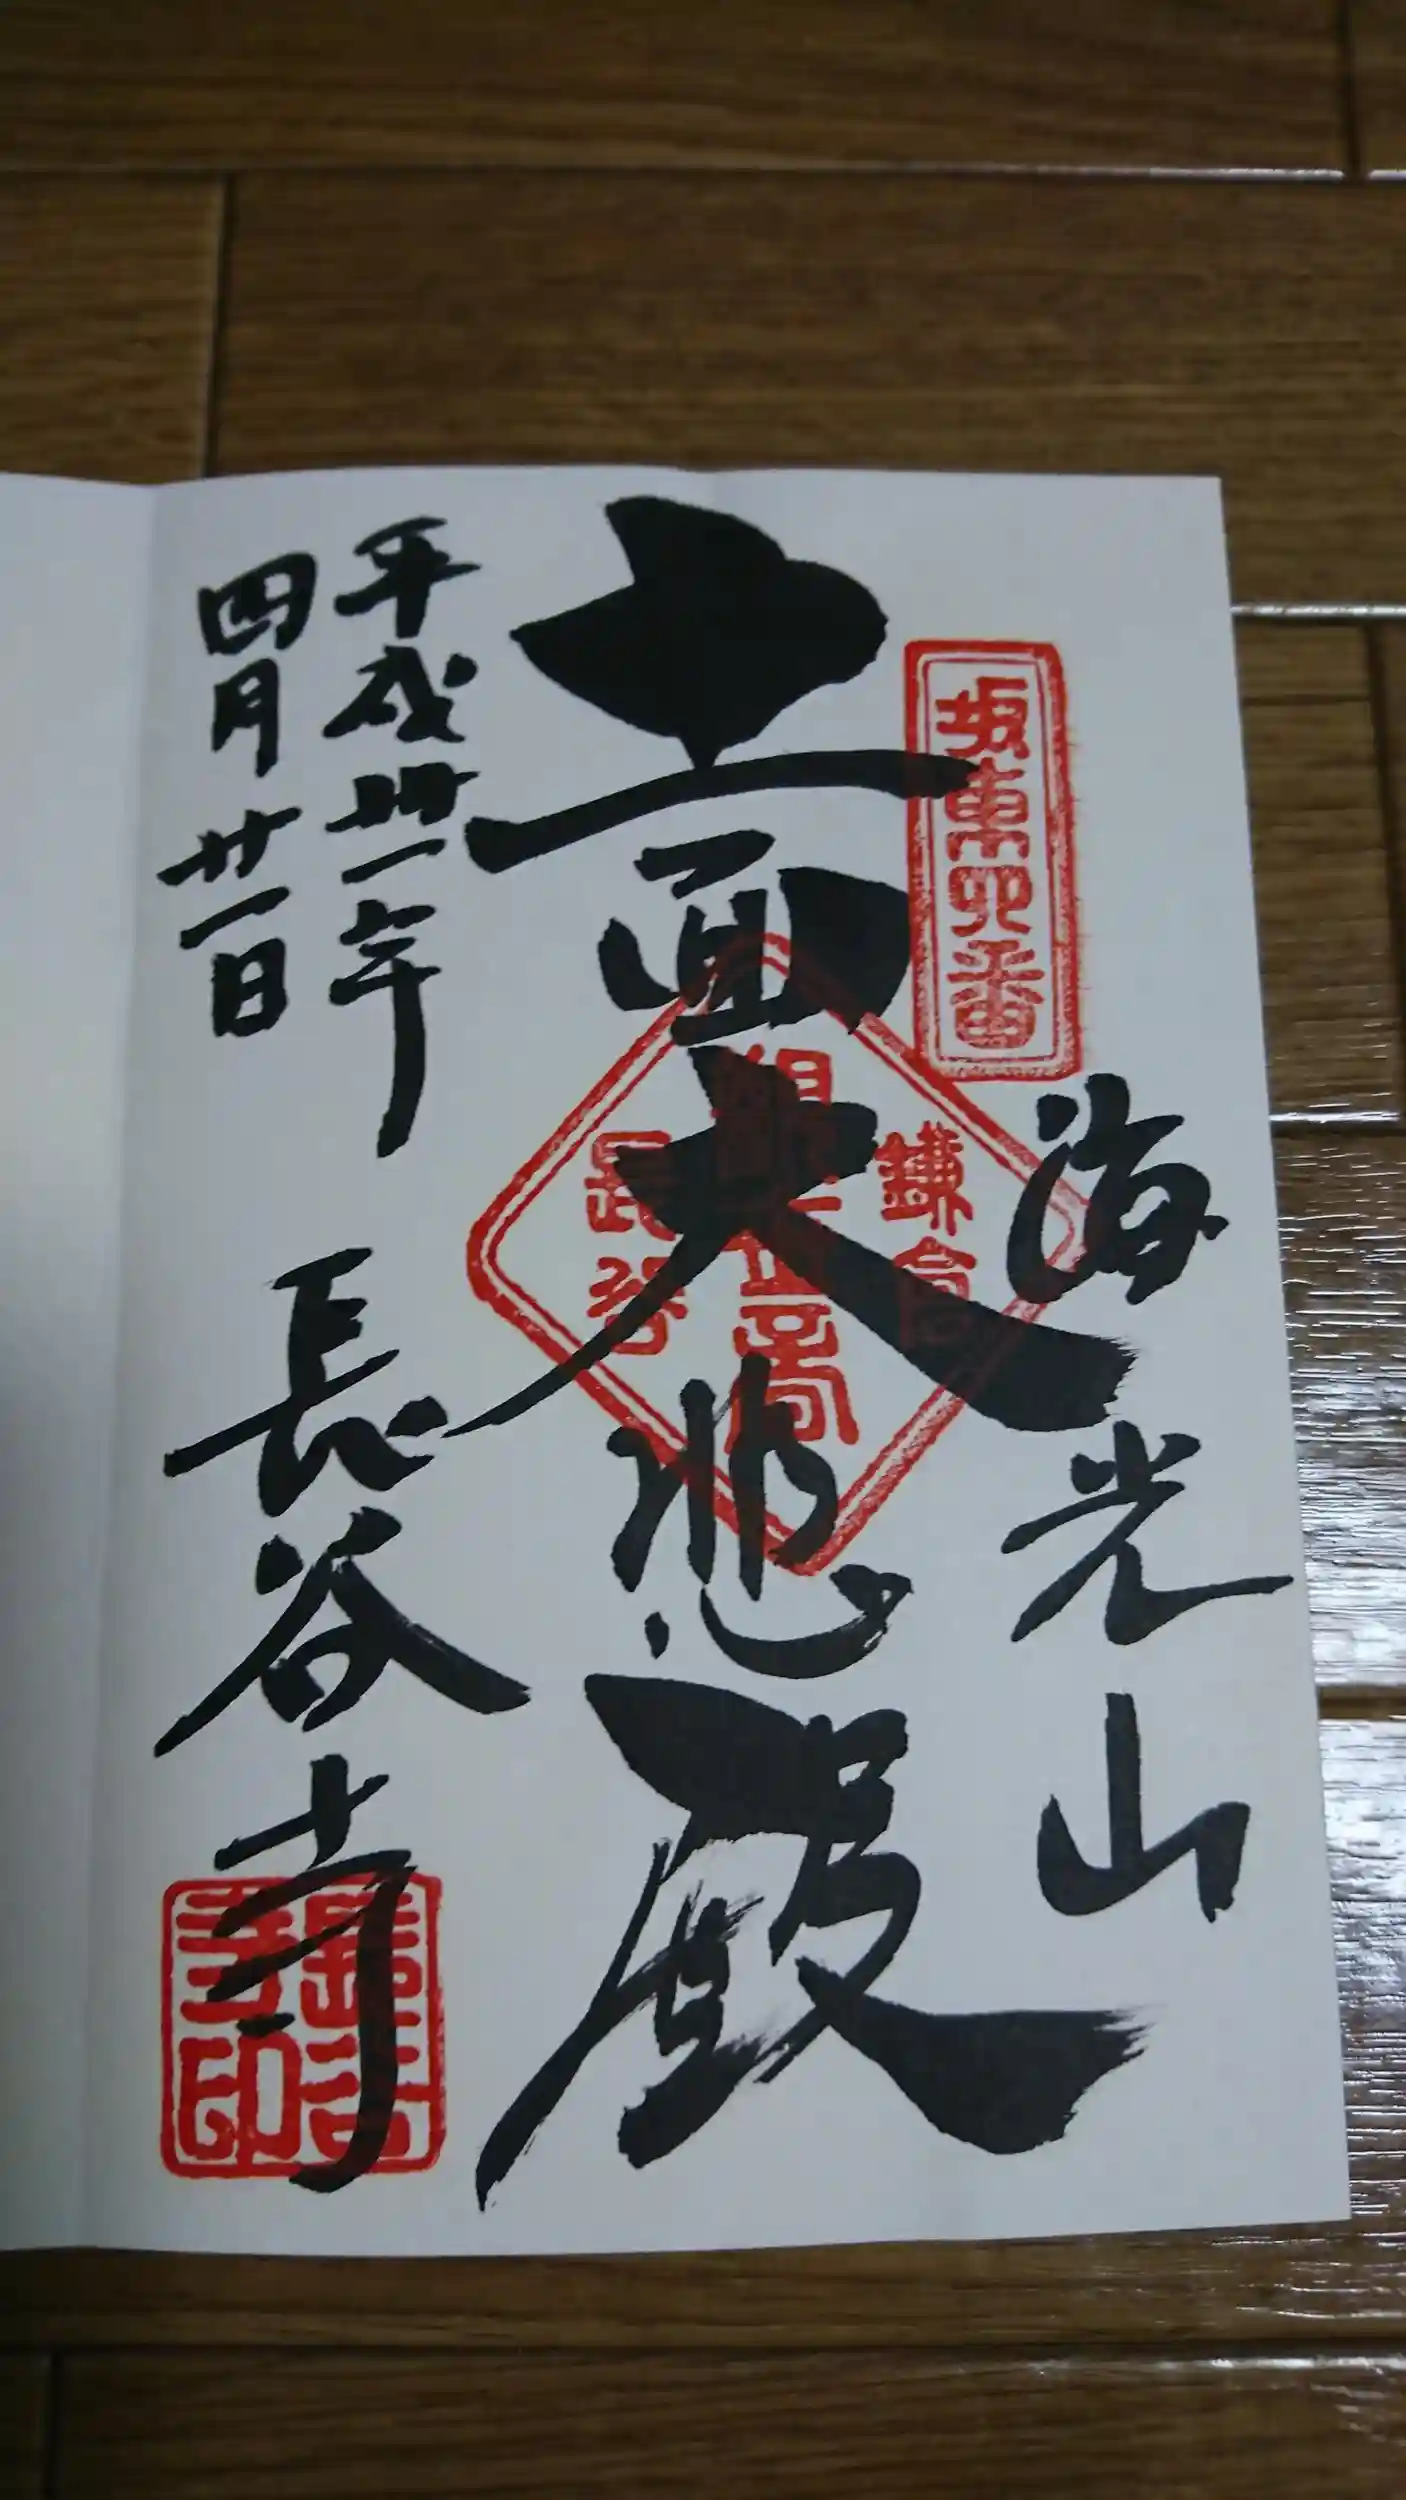 坂東四番
海光山
十一面大悲殿
鎌倉
長谷
平成卅一年
四月廿一日
長谷寺